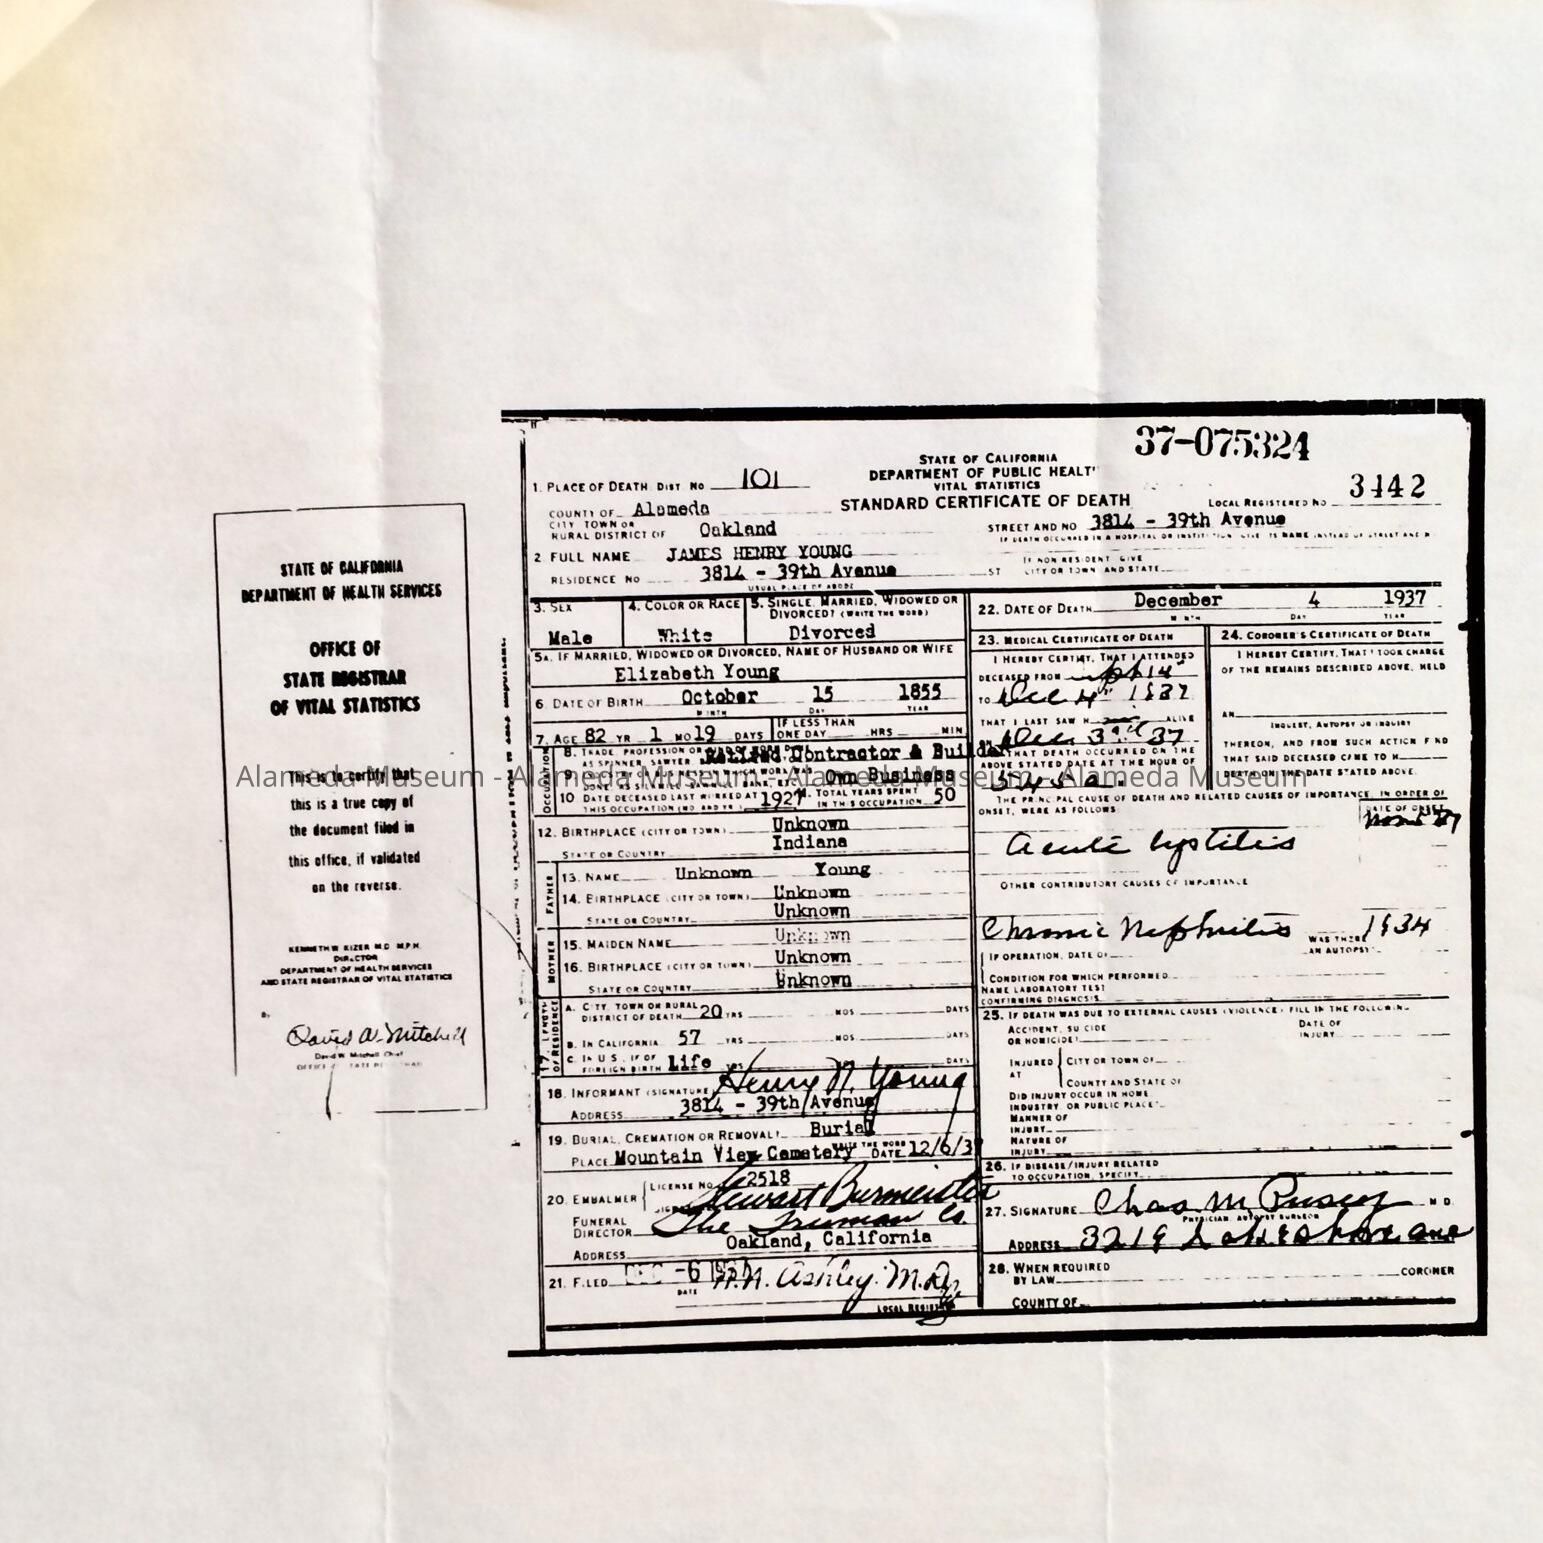 STATE OF CALIFORNIA
DEPARTMENT OF HEALTH SERVICES
OFFICE OF
STATE REGISTRAR
OF VITAL STATISTICS
This is to certify that
this is a true copy of
the document filed in
this office, if validated
on the reverse.
KENNETH W KIZER M D M.P.H.
DIRECTOR
DEPARTMENT OF HEALTH SERVICES
AND STATE REGISTRAR OF VITAL STATISTICS
By
David W. Mitchell
David W. Mitchell Chief
37-075324
STATE OF CALIFORNIA
DEPARTMENT OF PUBLIC HEALT
VITAL STATISTICS
STANDARD CERTIFICATE OF DEATH
1. PLACE OF DEATH: DIST. NO 101
LOCAL REGISTERED NO 3442
COUNTY OF Alameda
CITY TOWN OR
RURAL DISTRICT OF Oakland
STREET AND NO 3814 - 39th Avenue
2. FULL NAME JAMES HENRY YOUNG
RESIDENCE NO 3814 - 39th Avenue ST
USUAL PLACE OF ABODE
IF NON RESIDENT, GIVE
CITY OR TOWN AND STATE
3. SEX Male
4. COLOR OR RACE White
5. SINGLE, MARRIED, WIDOWED OR
DIVORCED? (WRITE THE WORD)
Divorced
5A. IF MARRIED, WIDOWED OR DIVORCED, NAME OF HUSBAND OR WIFE
Elizabeth Young
6. DATE OF BIRTH October 15 1855
MONTH DAY YEAR
7. AGE 82 YR 1 MO 19 DAYS
IF LESS THAN
ONE DAY HRS MIN
OCCUPATION
8. TRADE, PROFESSION OR
AS SPINNER, SAWYER Retired Contractor & Builder
9. Own Business
10 DATE DECEASED LAST WORKED AT
THIS OCCUPATION (MO AND YR) 1927
TOTAL YEARS SPENT
IN THIS OCCUPATION 50
12. BIRTHPLACE (CITY OR TOWN) Unknown
STATE OR COUNTRY Indiana
FATHER
13. NAME Unknown Young
14. BIRTHPLACE (CITY OR TOWN) Unknown
STATE OR COUNTRY Unknown
MOTHER
15. MAIDEN NAME Unknown
16. BIRTHPLACE (CITY OR TOWN) Unknown
STATE OR COUNTRY Unknown
17. LENGTH
OF RESIDENCE
A. CITY, TOWN OR RURAL
DISTRICT OF DEATH 20 YRS MOS DAYS
B. IN CALIFORNIA 57 YRS MOS DAYS
C. IN U S , IF OF
FOREIGN BIRTH Life DAYS
18. INFORMANT (SIGNATURE) Henry N. Young
ADDRESS 3814 - 39th Avenue
19. BURIAL, CREMATION OR REMOVAL? Burial
WRITE THE WORD
PLACE Mountain View Cemetery DATE 12/6/37
20. EMBALMER LICENSE NO 2518
Stewart Burmeister
FUNERAL
DIRECTOR The Truman Co.
ADDRESS Oakland, California
21. FILED DEC -6 1937 N.N. Ashley. M.D.
DATE
LOCAL REGISTRAR
22. DATE OF DEATH December 4 1937
MONTH DAY YEAR
23. MEDICAL CERTIFICATE OF DEATH
I HEREBY CERTIFY, THAT I ATTENDED
DECEASED FROM
TO Dec 4th 1937
THAT I LAST SAW H ALIVE
Dec. 3rd 37
THAT DEATH OCCURRED ON THE
ABOVE STATED DATE AT THE HOUR OF
24. CORONER'S CERTIFICATE OF DEATH
I HEREBY CERTIFY, THAT I TOOK CHARGE
OF THE REMAINS DESCRIBED ABOVE, HELD
AN
INQUEST, AUTOPSY OR INQUIRY
THEREON, AND FROM SUCH ACTION FIND
THAT SAID DECEASED CAME TO H
DEATH ON THE DATE STATED ABOVE.
THE PRINCIPAL CAUSE OF DEATH AND RELATED CAUSES OF IMPORTANCE, IN ORDER OF
ONSET, WERE AS FOLLOWS
DATE OF ONSET
Acute Cystitis
OTHER CONTRIBUTORY CAUSES OF IMPORTANCE
Chronic Nephritis 1934
WAS THERE
AN AUTOPSY
IF OPERATION, DATE OF
CONDITION FOR WHICH PERFORMED
NAME LABORATORY TEST
CONFIRMING DIAGNOSIS
25. IF DEATH WAS DUE TO EXTERNAL CAUSES (VIOLENCE) FILL IN THE FOLLOWING
ACCIDENT, SUICIDE
OR HOMICIDE?
DATE OF
INJURY
INJURED
AT
CITY OR TOWN OF
COUNTY AND STATE OF
DID INJURY OCCUR IN HOME
INDUSTRY, OR PUBLIC PLACE?
MANNER OF
INJURY
NATURE OF
INJURY
26. IF DISEASE/INJURY RELATED
TO OCCUPATION, SPECIFY
27. SIGNATURE Chas M Pusey M D
PHYSICIAN, AUTOPSY SURGEON
ADDRESS 3219 Lakeshore ave
28. WHEN REQUIRED
BY LAW CORONER
COUNTY OF
Alameda Museum - Alameda Museum - Alameda Museum - Alameda Museum